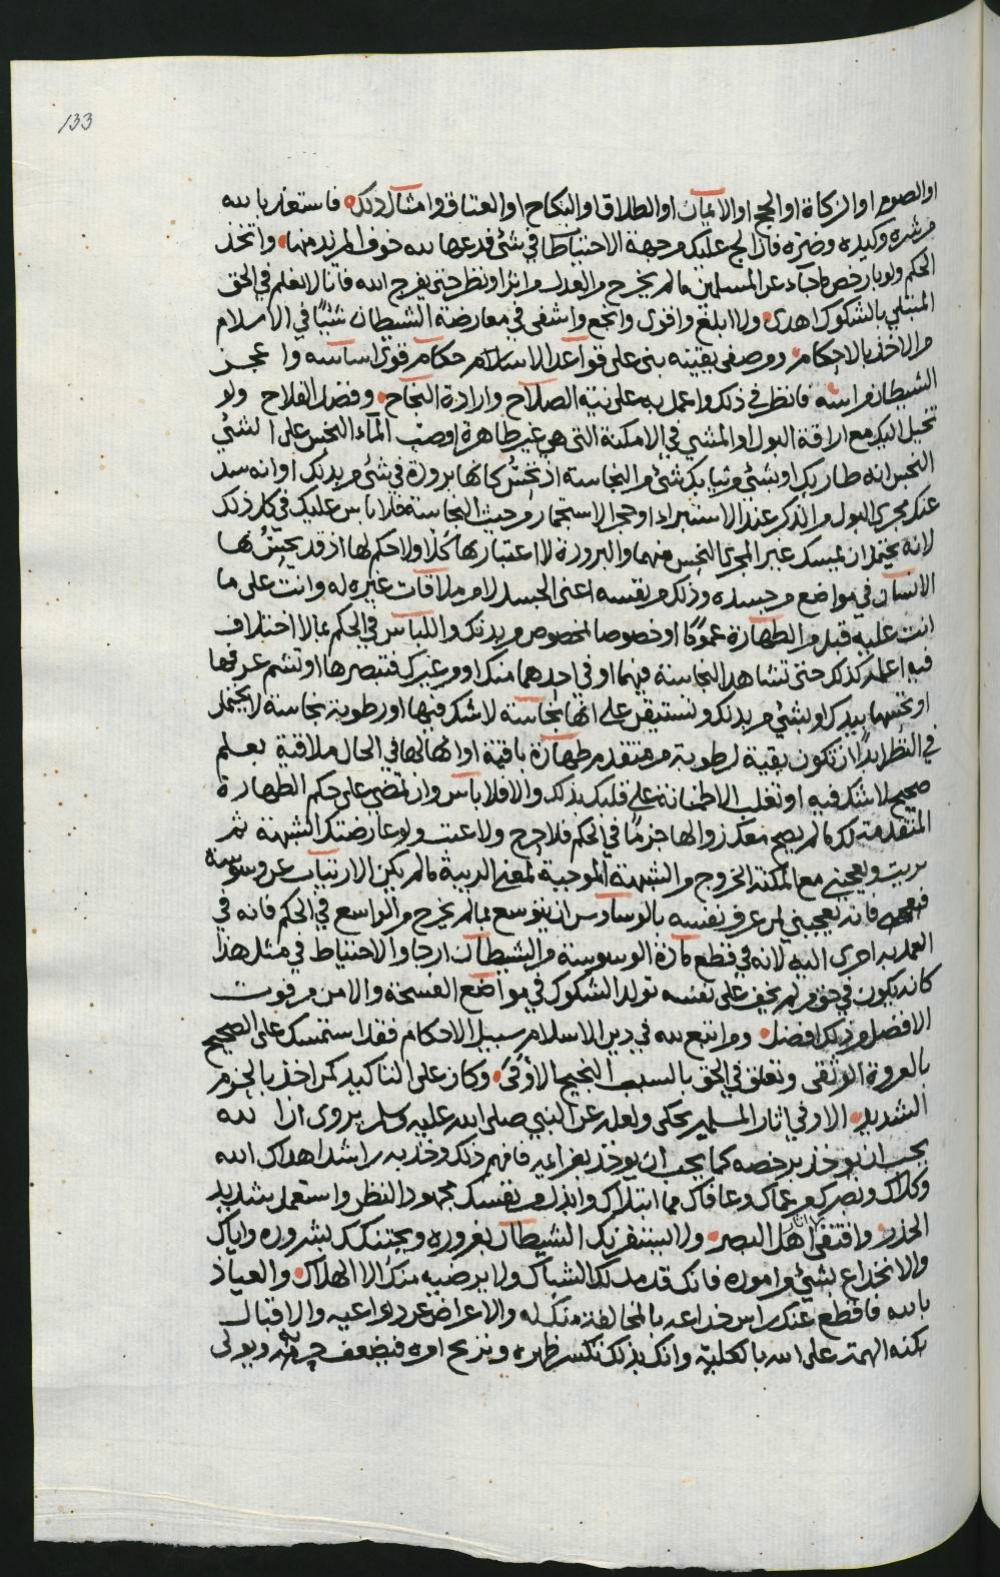 133
او الصوم او الزكاة او الحج او الايمان او الطلاق او النكاح او العتاق وامثال ذلك فاستعذ بالله
من شره وكيده وضره فان الج عليك من جهة الاحتياط في شئ فدعها لله خوف المزيد منها واتخذ
الحكم ولو بارخص ما جاء عن المسلمين ما لم يخرج من العدل وانتظر حتى يفرج الله فانا لا نعلم في الحق
المبتلي بالشكوك اهدى ولا ابلغ واقوى وانجع واشفى في معارضة الشيطان شيئا في الاسلام
من الاخذ بالاحكام ومن صفى يقينه بنى على قواعد الاسلام حكام قوى اساسه واعجز
الشيطان مراسه فانظر في ذلك واعمل به على نية الصلاح وارادة النجاح وفضل الفلاح ولو
تخيل اليك مع اراقة البول او المشي في الامكنة التي هي غير طاهرة او صب الماء النجس على الشئ
النجس انه طار بك او بشئ من ثيابك شئ من النجاسة اذ تحس كانها برودة في شئ من بدنك او انه سد
عنك مجرى البول من الذكر عند الاستبراء او حجر الاستجمار من حيث النجاسة فلا باس عليك في كل ذلك
لانه يحتمل ان يمسك غير المجرى النجس منهما والبرودة لا اعتبار بها كلا ولا حكم لها اذ قد يحس بها
الانسان في مواضع من جسده وذلك من نفسه اعني الجسد لا من ملاقات غيره له وانت على ما
انت عليه قبل من الطهارة عموما او خصوصا لمخصوص من بدنك واللباس في الحكم بما لا اختلاف
فيه اعلم كذلك حتى تشاهد النجاسة فيهما او في احدهما منك او من غيرك فتبصرها او تشم عرفها
او تحسها بيدك او بشئ من بدنك وتستيقن على انها نجاسة لا شك فيها او رطوبة نجاسة لا يحتمل
في النظر ابدا ان تكون بقية لرطوبة من متقدم طهارة باقية او انها في الحال ملاقية بعلم
صحيح لا شك فيه او تغلب الاطمنانة على قلبك بذلك والا فلا باس وان تمضي على حكم الطهارة
المتقدمة لك ما لم يصح معك زوالها جزما في الحكم فلا حرج ولا عنت ولو عارضتك الشبهة ثم
بريت ويعجبني مع المكنة الخروج من الشبهة الموجبة لمعنى الريبة ما لم يكن الارتياب عن وسوسة
فانه يعجبني لمن عرف نفسه بالوساوس ان يتوسع بما لم يخرج من الواسع في الحكم فانه في
العمل به احرى اليه لانه في قطع مادة الوسوسة من الشيطان ارجا والاحتياط في مثل هذا
كانه يكون في حق من لم يخف على نفسه تولد الشكوك في مواضع الفسحة والامن من فوت
الافضل من ذلك افضل ومن اتبع لله في دين الاسلام سبيل الاحكام فقد استمسك على الصحيح
بالعروة الوثقى وتعلق في الحق بالسبب النجيح الاوفى وكان على التاكيد كمن اخذ بالجزم
الشديد الا وفي اثار المسلمين يحكى ولعله عن النبي صلى الله عليه وسلم يروى ان الله
يحب ان يوخذ برخصه كما يحب ان يوخذ بعزايمه فافهم ذلك وخذ به راشدا هداك الله
وكلاك ونصرك من عماك وعافاك مما ابتلاك وابذل من نفسك مجهود النظر واستعمل شديد
الحذر واقتفي اثار اهل البصر ولا يستفزنك الشيطان بغروره ويحتنكك بشروره واياك
والانخداع بشئ من اموره فانك قد مد لك الشباك ولا يرضيه منك الا الهلاك والعياذ
بالله فاقطع عنك راس خداعه بالمخالفة منك له والاعراض عن دواعيه والاقبال
بكنه الهمة على الله بالكلية وانك بذلك تكسر ظهره وتزيح امره فيضعف ويولى